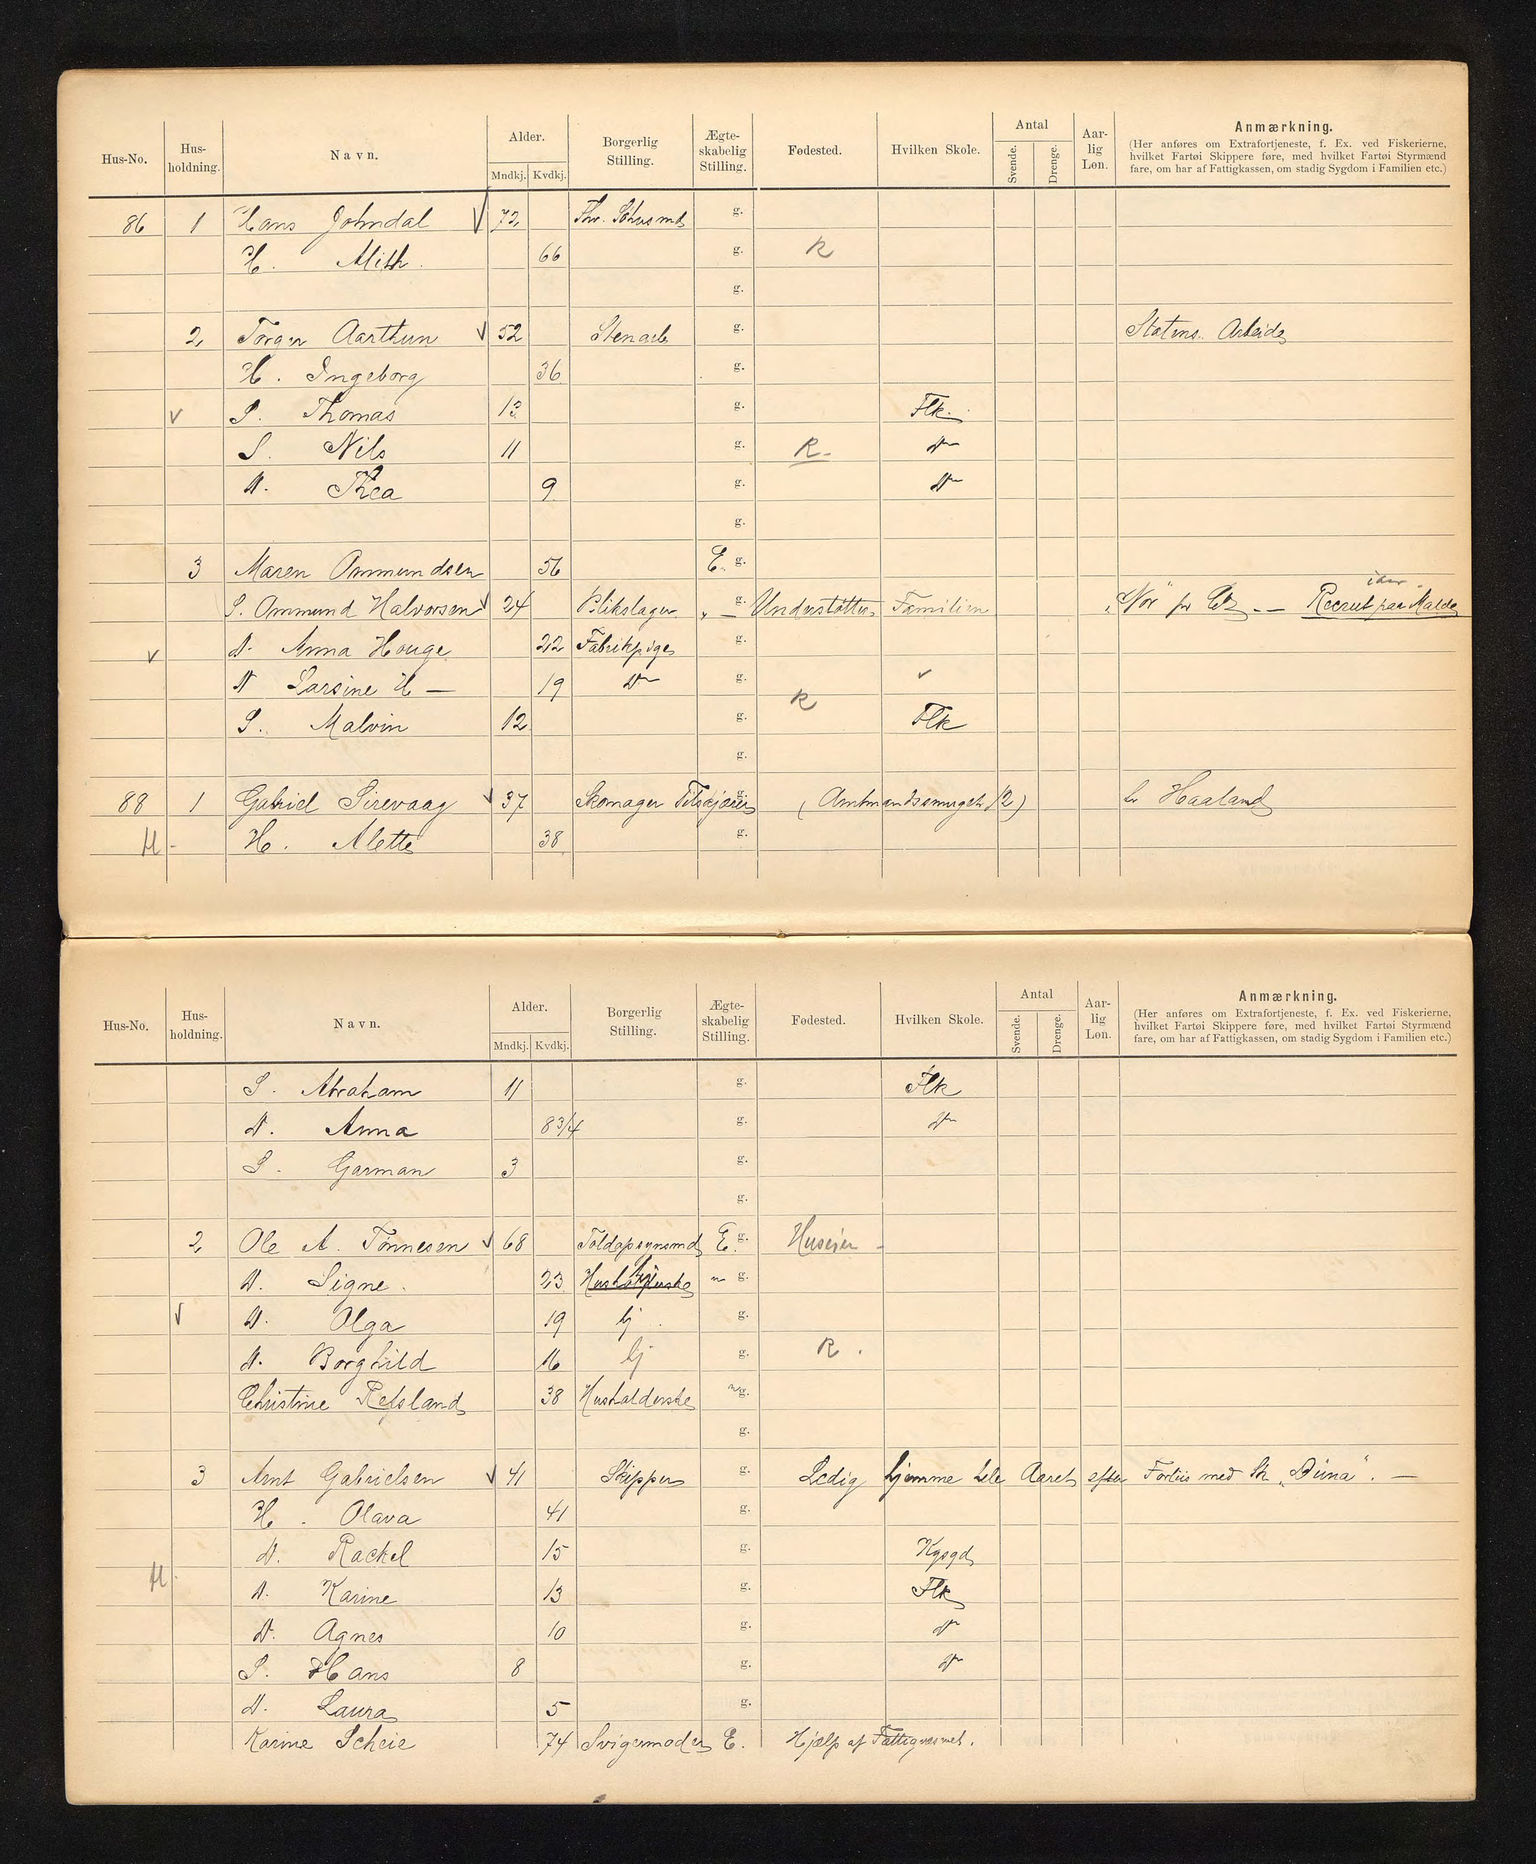 Hus-No. Hus-holdning. Navn. Alder. Mndkj. Kvdkj. Borgerlig Stilling. Ægte-skabelig Stilling. Fødested. Hvilken Skole. Antal Svende. Drenge. Aar-lig Løn. Anmærkning.
(Her anføres om Extrafortjeneste, f. Ex. ved Fiskerierne,
hvilket Fartøi Skippere føre, med hvilket Fartøi Styrmænd
fare, om har af Fattigkassen, om stadig Sygdom i Familien etc.)
86 1 Hans Johndal √ 72 g.
H. Alith. 66 g. R
g.
2, Tørger Aarthun √ 52 Stenarb g. Statens. Arbeide
H. Ingeborg 36 g.
√ S. Thomas 13 g. Flk.
S. Nils 11 g. R. do
D. Thea 9 g. do
g.
3 Maren Ommundsen 56 E. g.
S. Ommund Halvorsen √ 24 Blikslager „ — g. Understøtter Familien Recrut paa Malde
√ D. Anna Houge 22 Fabrikpige g.
D Larsine H — 19 do g. √
R
S. Malvin 12 g. Flk
g.
88 1 Gabriel Sirevaag √ 37 Skomager Tilskjærer g. (Amtmandssmuget 12) hr Haaland
H. Alette 38 g.
Hus-No. Hus-holdning. Navn. Alder. Mndkj. Kvdkj. Borgerlig Stilling. Ægte-skabelig Stilling. Fødested. Hvilken Skole. Antal Svende. Drenge. Aar-lig Løn. Anmærkning.
(Her anføres om Extrafortjeneste, f. Ex. ved Fiskerierne,
hvilket Fartøi Skippere føre, med hvilket Fartøi Styrmænd
fare, om har af Fattigkassen, om stadig Sygdom i Familien etc.)
S. Abraham 11 g. Flk
D. Anna 8 3/4 g. do
S. Garman 3 g.
g.
2, Ole A. Tønnesen √ 68 Toldopsynsmd E. g. Huseier —
D. Signe. 23 Husholderske g.
√ D. Olga 19 hj. g.
D. Borghild 16 hj g. R.
Christine Refsland 38 Husholderske g.
g.
3 Arnt Gabrielsen √ 41 Skipper g. Ledig hjemme hele Aaret efter Forliis med Sk „Düna". —
H. Olava 41 g.
D. Rackel 15 g. Kgsgd
D. Karine 13 g. Flk
D. Agnes 10 g. do
S. Hans 8 g. do
D. Laura 5 g.
Karine Scheie 74 Svigermoder E. Hjælp af Fattigvæsnet.